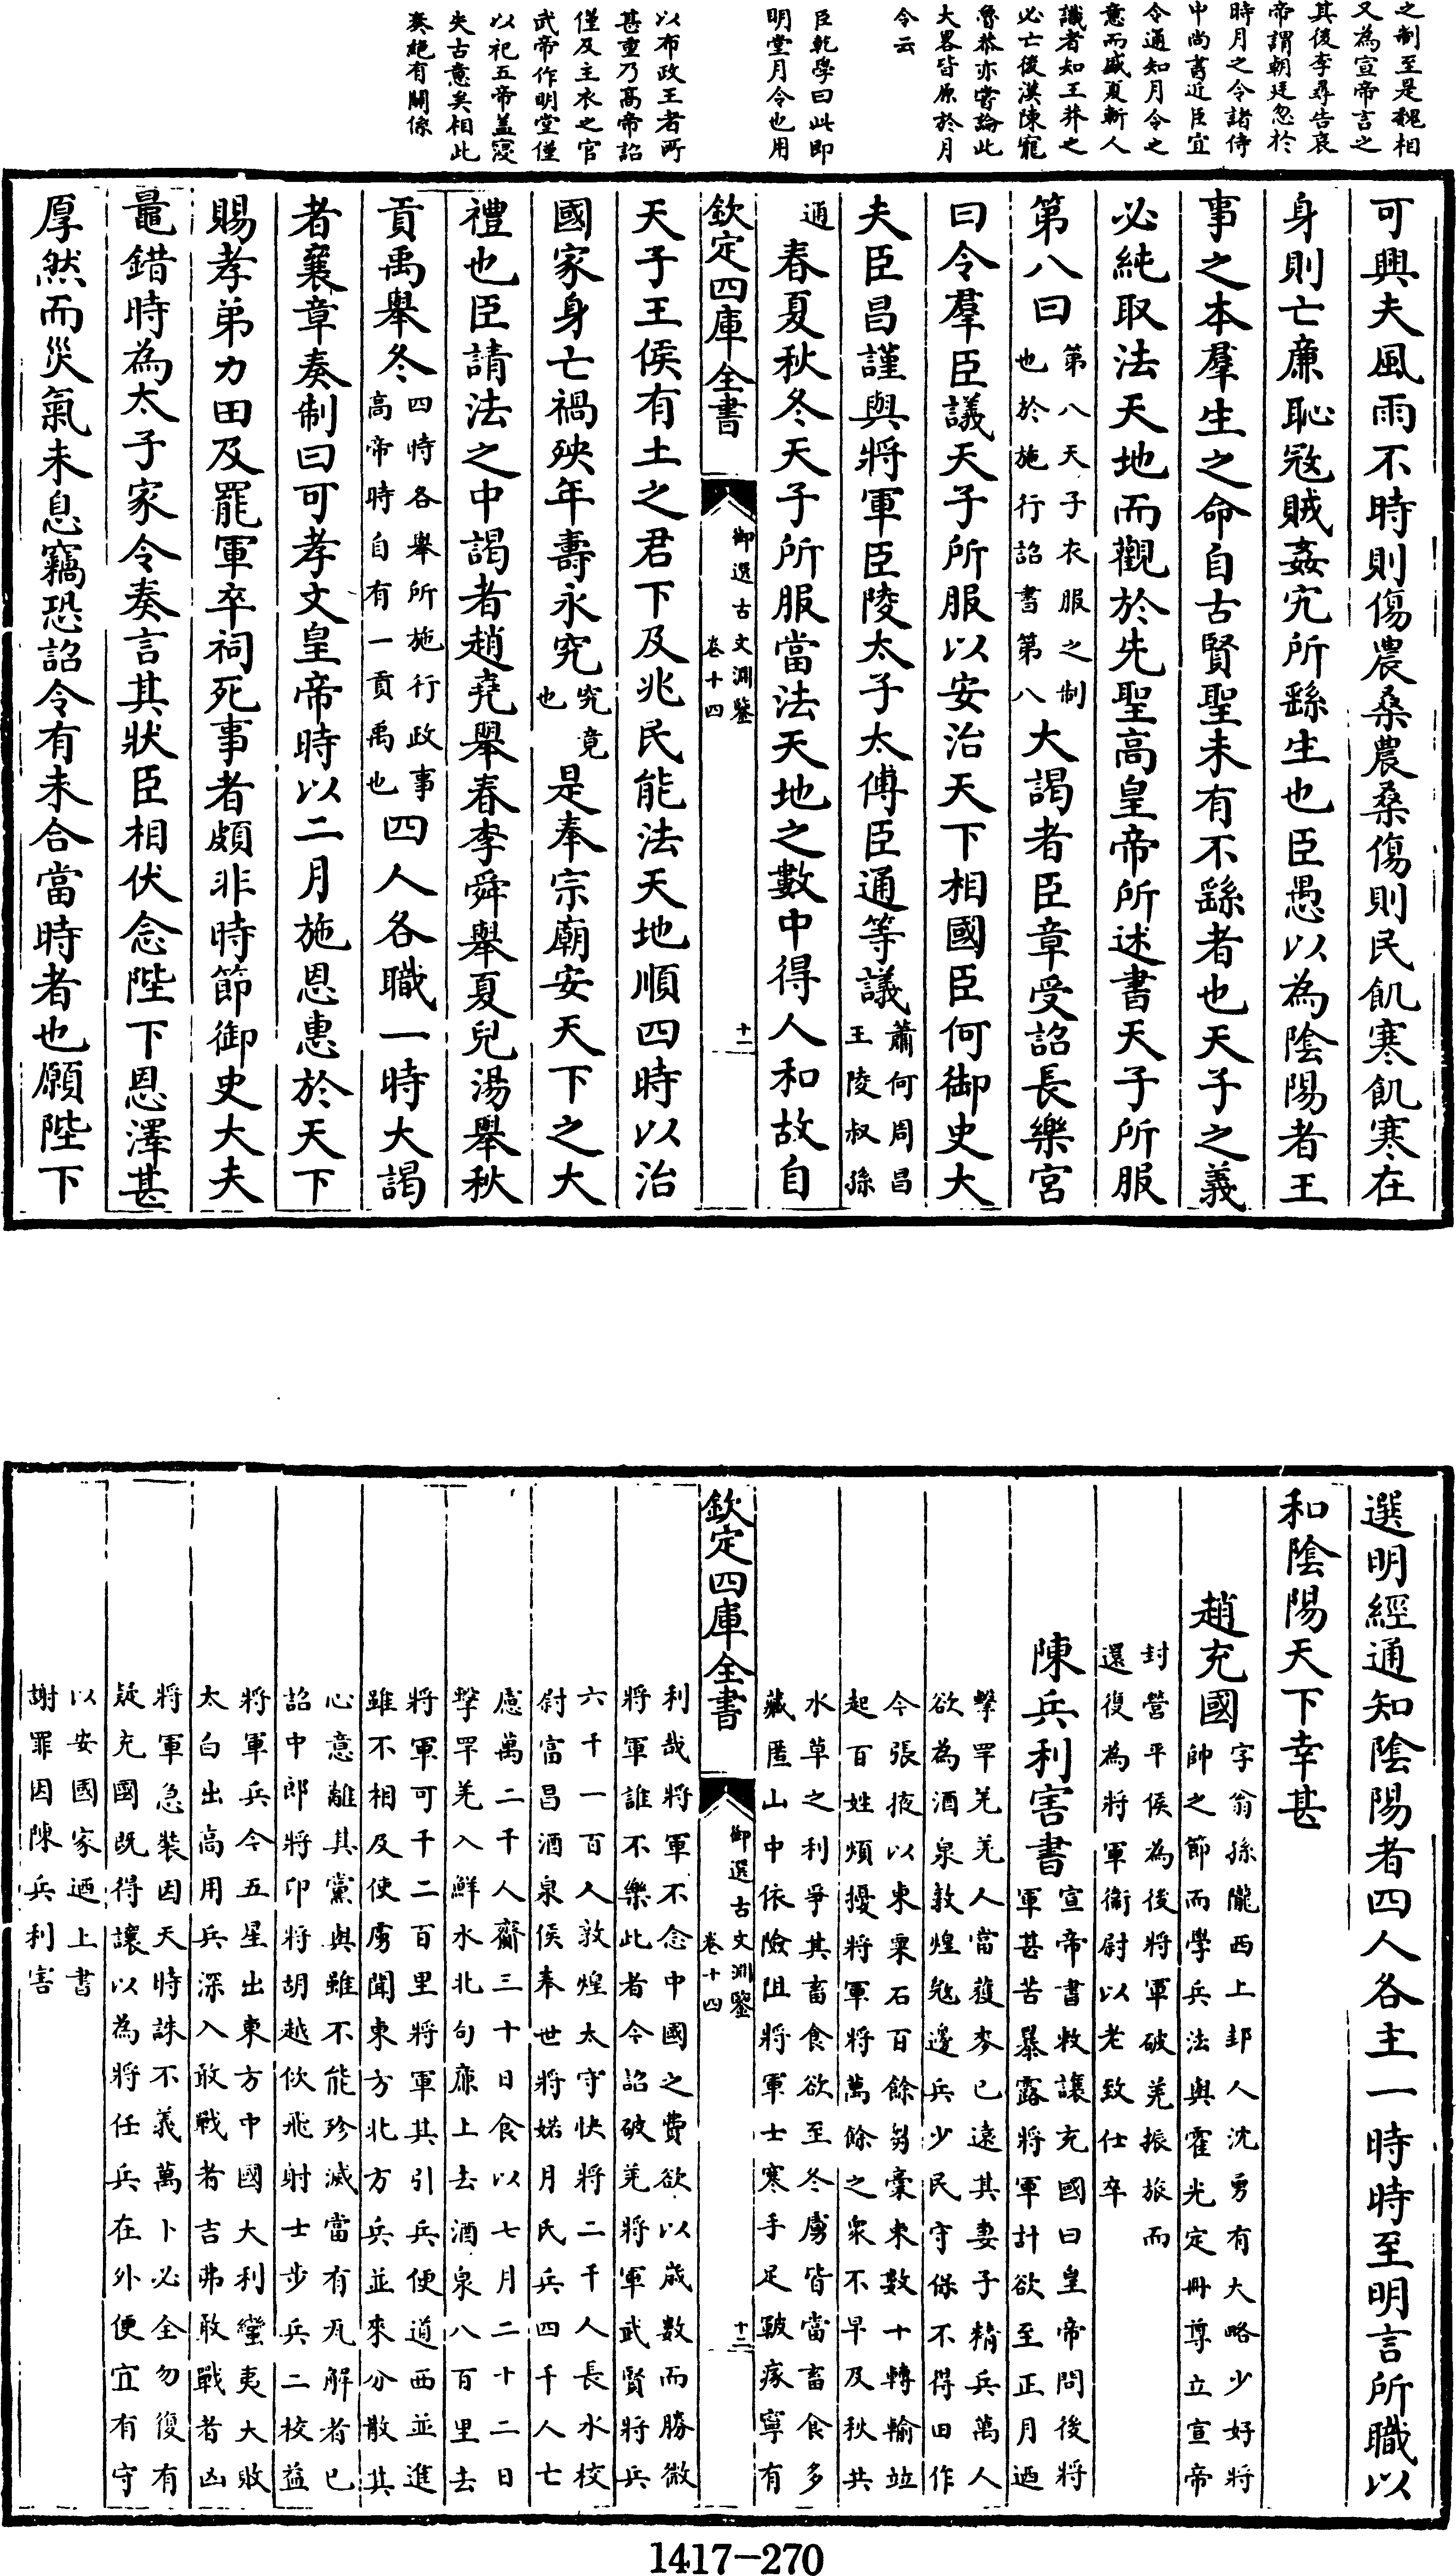 之制至是魏相
又為宣帝言之
其後李尋告哀
帝謂朝廷忽於
時月之令諸侍
中尚書近臣宜
令通知月令之
意而盛夏斬人
識者知王莽之
必亡後漢陳寵
魯恭亦嘗論此
大畧皆原於月
令云
臣乾學曰此即
明堂月令也用
以布政王者所
甚重乃髙帝詔
僅及主衣之官
武帝作明堂僅
以祀五帝盖寖
失古意矣相此
奏絶有關係
可興夫風雨不時則傷農桑農桑傷則民飢寒飢寒在
身則亡亷恥宼賊姦宄所繇生也臣愚以為陰陽者王
事之本羣生之命自古賢聖未有不繇者也天子之義
必純取法天地而觀於先聖髙皇帝所述書天子所服
第八曰第八天子衣服之制也於施行詔書第八大謁者臣章受詔長樂宮
曰令羣臣議天子所服以安治天下相國臣何御史大
夫臣昌謹與將軍臣陵太子太傅臣通等議蕭何周昌王陵叔孫
通春夏秋冬天子所服當法天地之數中得人和故自
欽定四庫全書
御選古文淵鑒
卷十四
十一
天子王侯有土之君下及兆民能法天地順四時以治
國家身亡禍殃年夀永究究竟也是奉宗廟安天下之大
禮也臣請法之中謁者趙堯舉春李舜舉夏兒湯舉秋
貢禹舉冬四時各舉所施行政事髙帝時自有一貢禹也四人各職一時大謁
者襄章奏制曰可孝文皇帝時以二月施恩惠於天下
賜孝弟力田及罷軍卒祠死事者頗非時節御史大夫
鼂錯時為太子家令奏言其狀臣相伏念陛下恩澤甚
厚然而災氣未息竊恐詔令有未合當時者也願陛下
選明經通知陰陽者四人各主一時時至明言所職以
和陰陽天下幸甚
趙充國字翁孫隴西上邽人沈勇有大略少好將帥之節而學兵法與霍光定冊尊立宣帝
封營平侯為後將軍破羌振旅而還復為將軍衞尉以老致仕卒
陳兵利害書宣帝書敕讓充國曰皇帝問後將軍甚苦暴露將軍計欲至正月廼
擊罕羌羌人當獲麥已遠其妻子精兵萬人欲為酒泉敦煌宼邊兵少民守保不得田作
今張掖以東粟石百餘芻藁束數十轉輸竝起百姓煩擾將軍將萬餘之衆不早及秋共
水草之利爭其畜食欲至冬虜皆當畜食多藏匿山中依險阻將軍士寒手足皸瘃寧有
欽定四庫全書
御選古文淵鑒
卷十四
十二
利哉將軍不念中國之費欲以歲數而勝微將軍誰不樂此者今詔破羌將軍武賢將兵
六千一百人敦煌太守快將二千人長水校尉富昌酒泉侯奉世將婼月氏兵四千人亡
慮萬二千人齎三十日食以七月二十二日擊罕羌入鮮水北句廉上去酒泉八百里去
將軍可千二百里將軍其引兵便道西並進雖不相及使虜聞東方北方兵並來分散其
心意離其黨與雖不能殄滅當有瓦解者已詔中郎將卬將胡越佽飛射士步兵二校益
將軍兵今五星出東方中國大利蠻夷大敗太白出高用兵深入敢戰者吉弗敢戰者凶
將軍急裝因天時誅不義萬卜必全勿復有疑充國既得讓以為將任兵在外便宜有守
以安國家廼上書謝罪因陳兵利害
1417-270